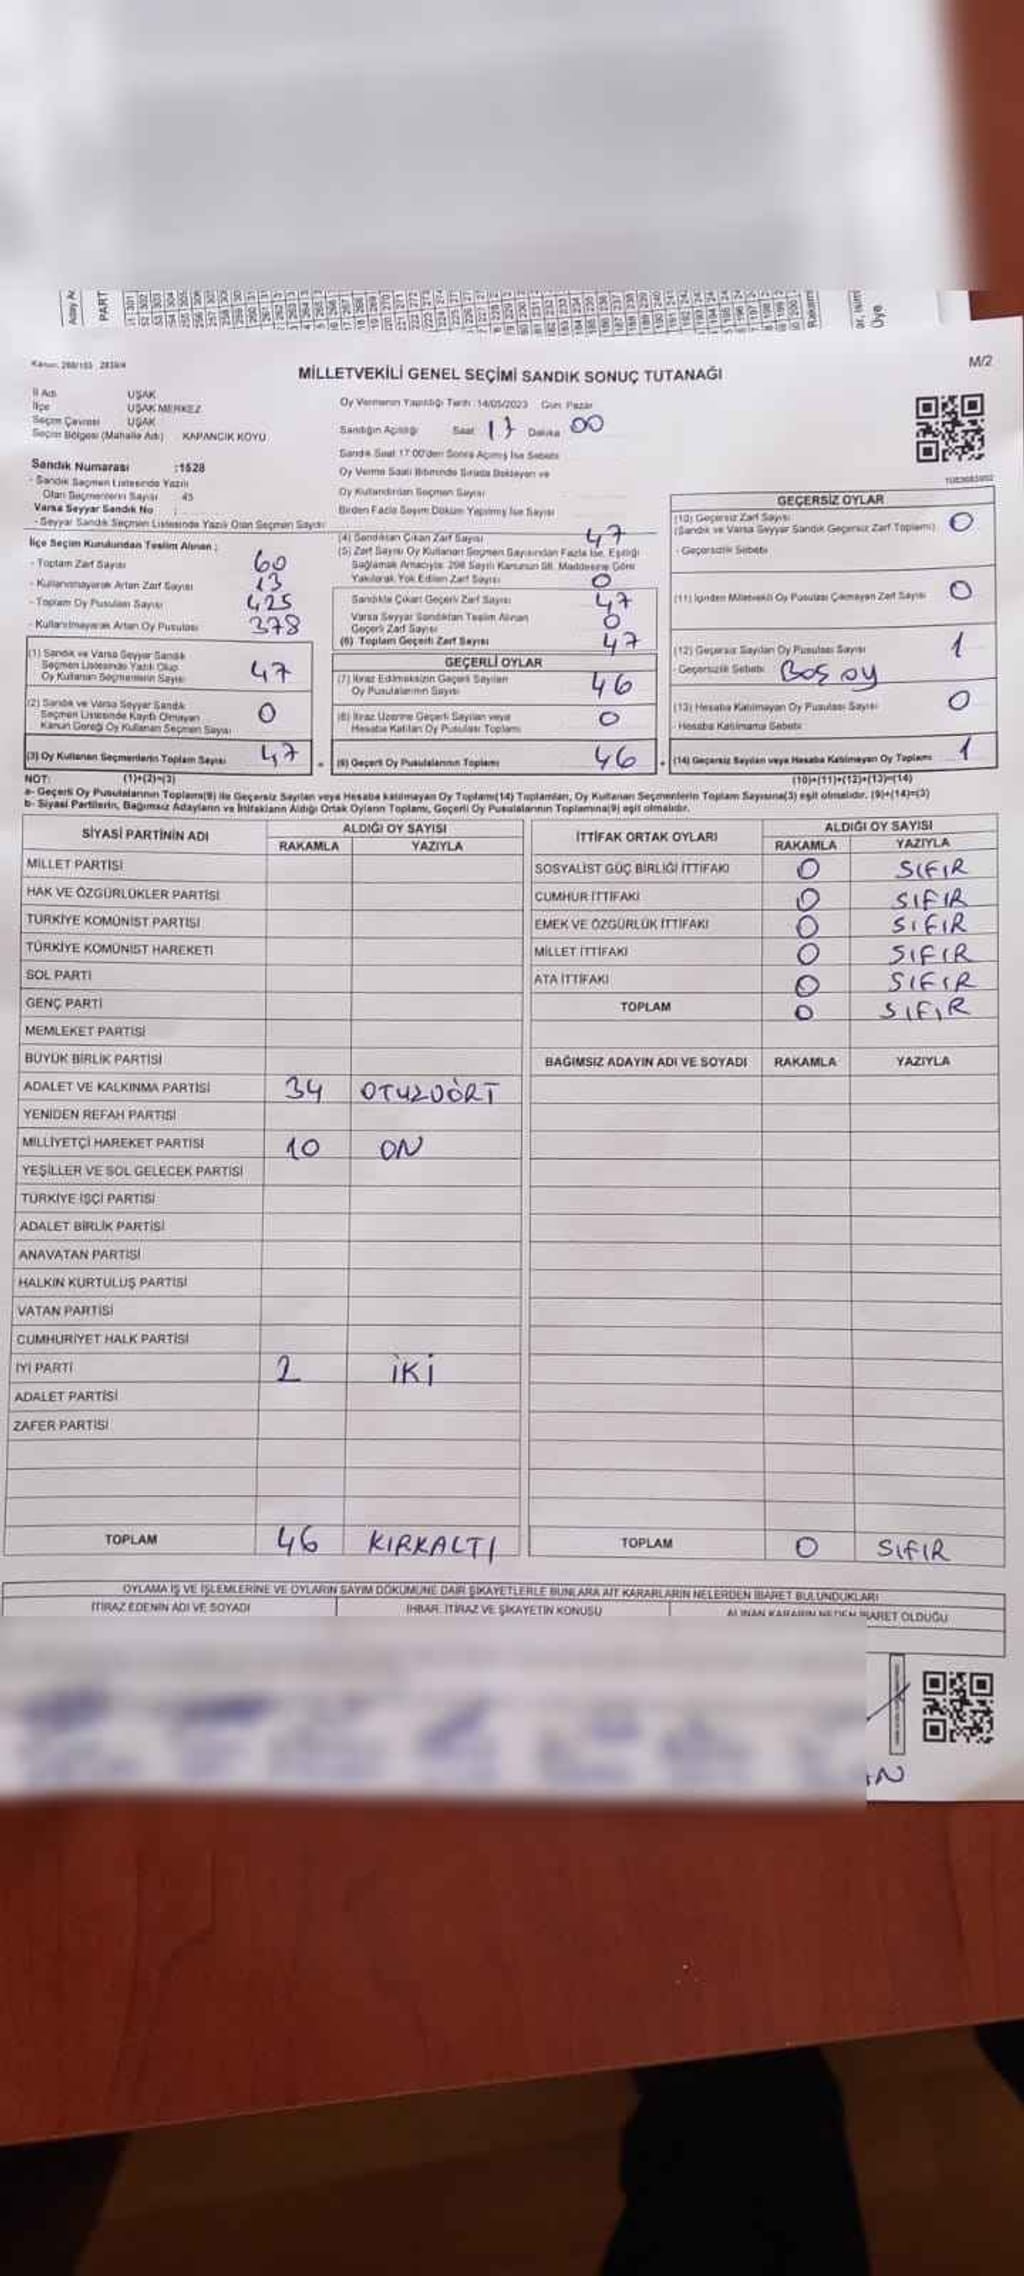 Aday A
PART
Rakam
Üye
M/2
MİLLETVEKİLİ GENEL SEÇİMİ SANDIK SONUÇ TUTANAĞI
İl Adı UŞAK
İlçe UŞAK MERKEZ
Seçim Çevresi UŞAK
Seçim Bölgesi (Mahalle Adı) KAPANCIK KOYU
Oy Vermenin Yapıldığı Tarih :14/05/2023 Gün: Pazar
Sandığın Açılışı Saat 17 Dakika 00
Sandık Saat 17:00'den Sonra Açılmış İse Sebebi
Oy Verme Saati Bitiminde Sırada Bekleyen ve
Oy Kullandırılan Seçmen Sayısı
Birden Fazla Seçim Döküm Yapılmış İse Sayısı
Sandık Numarası :1528
- Sandık Seçmen Listesinde Yazılı
Olan Seçmenlerin Sayısı 45
Varsa Seyyar Sandık No :
- Seyyar Sandık Seçmen Listesinde Yazılı Olan Seçmen Sayısı
İlçe Seçim Kurulundan Teslim Alınan ;
- Toplam Zarf Sayısı 60
- Kullanılmayarak Artan Zarf Sayısı 13
- Toplam Oy Pusulası Sayısı 425
- Kullanılmayarak Artan Oy Pusulası 378
(1) Sandık ve Varsa Seyyar Sandık
Seçmen Listesinde Yazılı Olup
Oy Kullanan Seçmenlerin Sayısı 47
(2) Sandık ve Varsa Seyyar Sandık
Seçmen Listesinde Kayıtlı Olmayan
Kanun Gereği Oy Kullanan Seçmen Sayısı 0
(3) Oy Kullanan Seçmenlerin Toplam Sayısı 47
(4) Sandıktan Çıkan Zarf Sayısı 47
(5) Zarf Sayısı Oy Kullanan Seçmen Sayısından Fazla İse, Eşitliği
Sağlamak Amacıyla; 298 Sayılı Kanunun 98. Maddesine Göre
Yakılarak Yok Edilen Zarf Sayısı 0
Sandıkta Çıkan Geçerli Zarf Sayısı 47
Varsa Seyyar Sandıktan Teslim Alınan
Geçerli Zarf Sayısı 0
(6) Toplam Geçerli Zarf Sayısı 47
GEÇERLİ OYLAR
(7) İtiraz Edilmeksizin Geçerli Sayılan
Oy Pusulalarının Sayısı 46
(8) İtiraz Üzerine Geçerli Sayılan veya
Hesaba Katılan Oy Pusulası Toplamı 0
= (9) Geçerli Oy Pusulalarının Toplamı 46
GEÇERSİZ OYLAR
(10) Geçersiz Zarf Sayısı
(Sandık ve Varsa Seyyar Sandık Geçersiz Zarf Toplamı) 0
- Geçersizlik Sebebi
(11) İçinden Milletvekili Oy Pusulası Çıkmayan Zarf Sayısı 0
(12) Geçersiz Sayılan Oy Pusulası Sayısı 1
- Geçersizlik Sebebi Boş oy
(13) Hesaba Katılmayan Oy Pusulası Sayısı 0
- Hesaba Katılmama Sebebi
+ (14) Geçersiz Sayılan veya Hesaba Katılmayan Oy Toplamı 1
NOT: (1)+(2)=(3) (10)+(11)+(12)+(13)=(14)
a- Geçerli Oy Pusulalarının Toplamı(9) ile Geçersiz Sayılan veya Hesaba katılmayan Oy Toplamı(14) Toplamları, Oy Kullanan Seçmenlerin Toplam Sayısına(3) eşit olmalıdır. (9)+(14)=(3)
b- Siyasi Partilerin, Bağımsız Adayların ve İttifakların Aldığı Ortak Oyların Toplamı, Geçerli Oy Pusulalarının Toplamına(9) eşit olmalıdır.
SİYASİ PARTİNİN ADI ALDIĞI OY SAYISI
RAKAMLA YAZIYLA
MİLLET PARTİSİ
HAK VE ÖZGÜRLÜKLER PARTİSİ
TÜRKİYE KOMÜNİST PARTİSİ
TÜRKİYE KOMÜNİST HAREKETİ
SOL PARTİ
GENÇ PARTİ
MEMLEKET PARTİSİ
BÜYÜK BİRLİK PARTİSİ
ADALET VE KALKINMA PARTİSİ 34 OTUZDÖRT
YENİDEN REFAH PARTİSİ
MİLLİYETÇİ HAREKET PARTİSİ 10 ON
YEŞİLLER VE SOL GELECEK PARTİSİ
TÜRKİYE İŞÇİ PARTİSİ
ADALET BİRLİK PARTİSİ
ANAVATAN PARTİSİ
HALKIN KURTULUŞ PARTİSİ
VATAN PARTİSİ
CUMHURİYET HALK PARTİSİ
İYİ PARTİ 2 İKİ
ADALET PARTİSİ
ZAFER PARTİSİ
TOPLAM 46 KIRKALTI
İTTİFAK ORTAK OYLARI ALDIĞI OY SAYISI
RAKAMLA YAZIYLA
SOSYALİST GÜÇ BİRLİĞİ İTTİFAKI 0 SIFIR
CUMHUR İTTİFAKI 0 SIFIR
EMEK VE ÖZGÜRLÜK İTTİFAKI 0 SIFIR
MİLLET İTTİFAKI 0 SIFIR
ATA İTTİFAKI 0 SIFIR
TOPLAM 0 SIFIR
BAĞIMSIZ ADAYIN ADI VE SOYADI RAKAMLA YAZIYLA
TOPLAM 0 SIFIR
OYLAMA İŞ VE İŞLEMLERİNE VE OYLARIN SAYIM DÖKÜMÜNE DAİR ŞİKAYETLERLE BUNLARA AİT KARARLARIN NELERDEN İBARET BULUNDUKLARI
İTİRAZ EDENİN ADI VE SOYADI İHBAR, İTİRAZ VE ŞİKAYETİN KONUSU ALINAN KARARIN NEDEN İBARET OLDUĞU